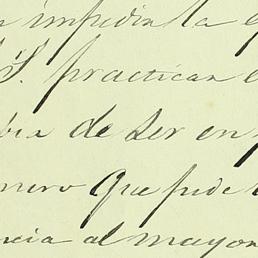 impedia la
S. practican
bia de ser en
nero que pide
ncia al mayor